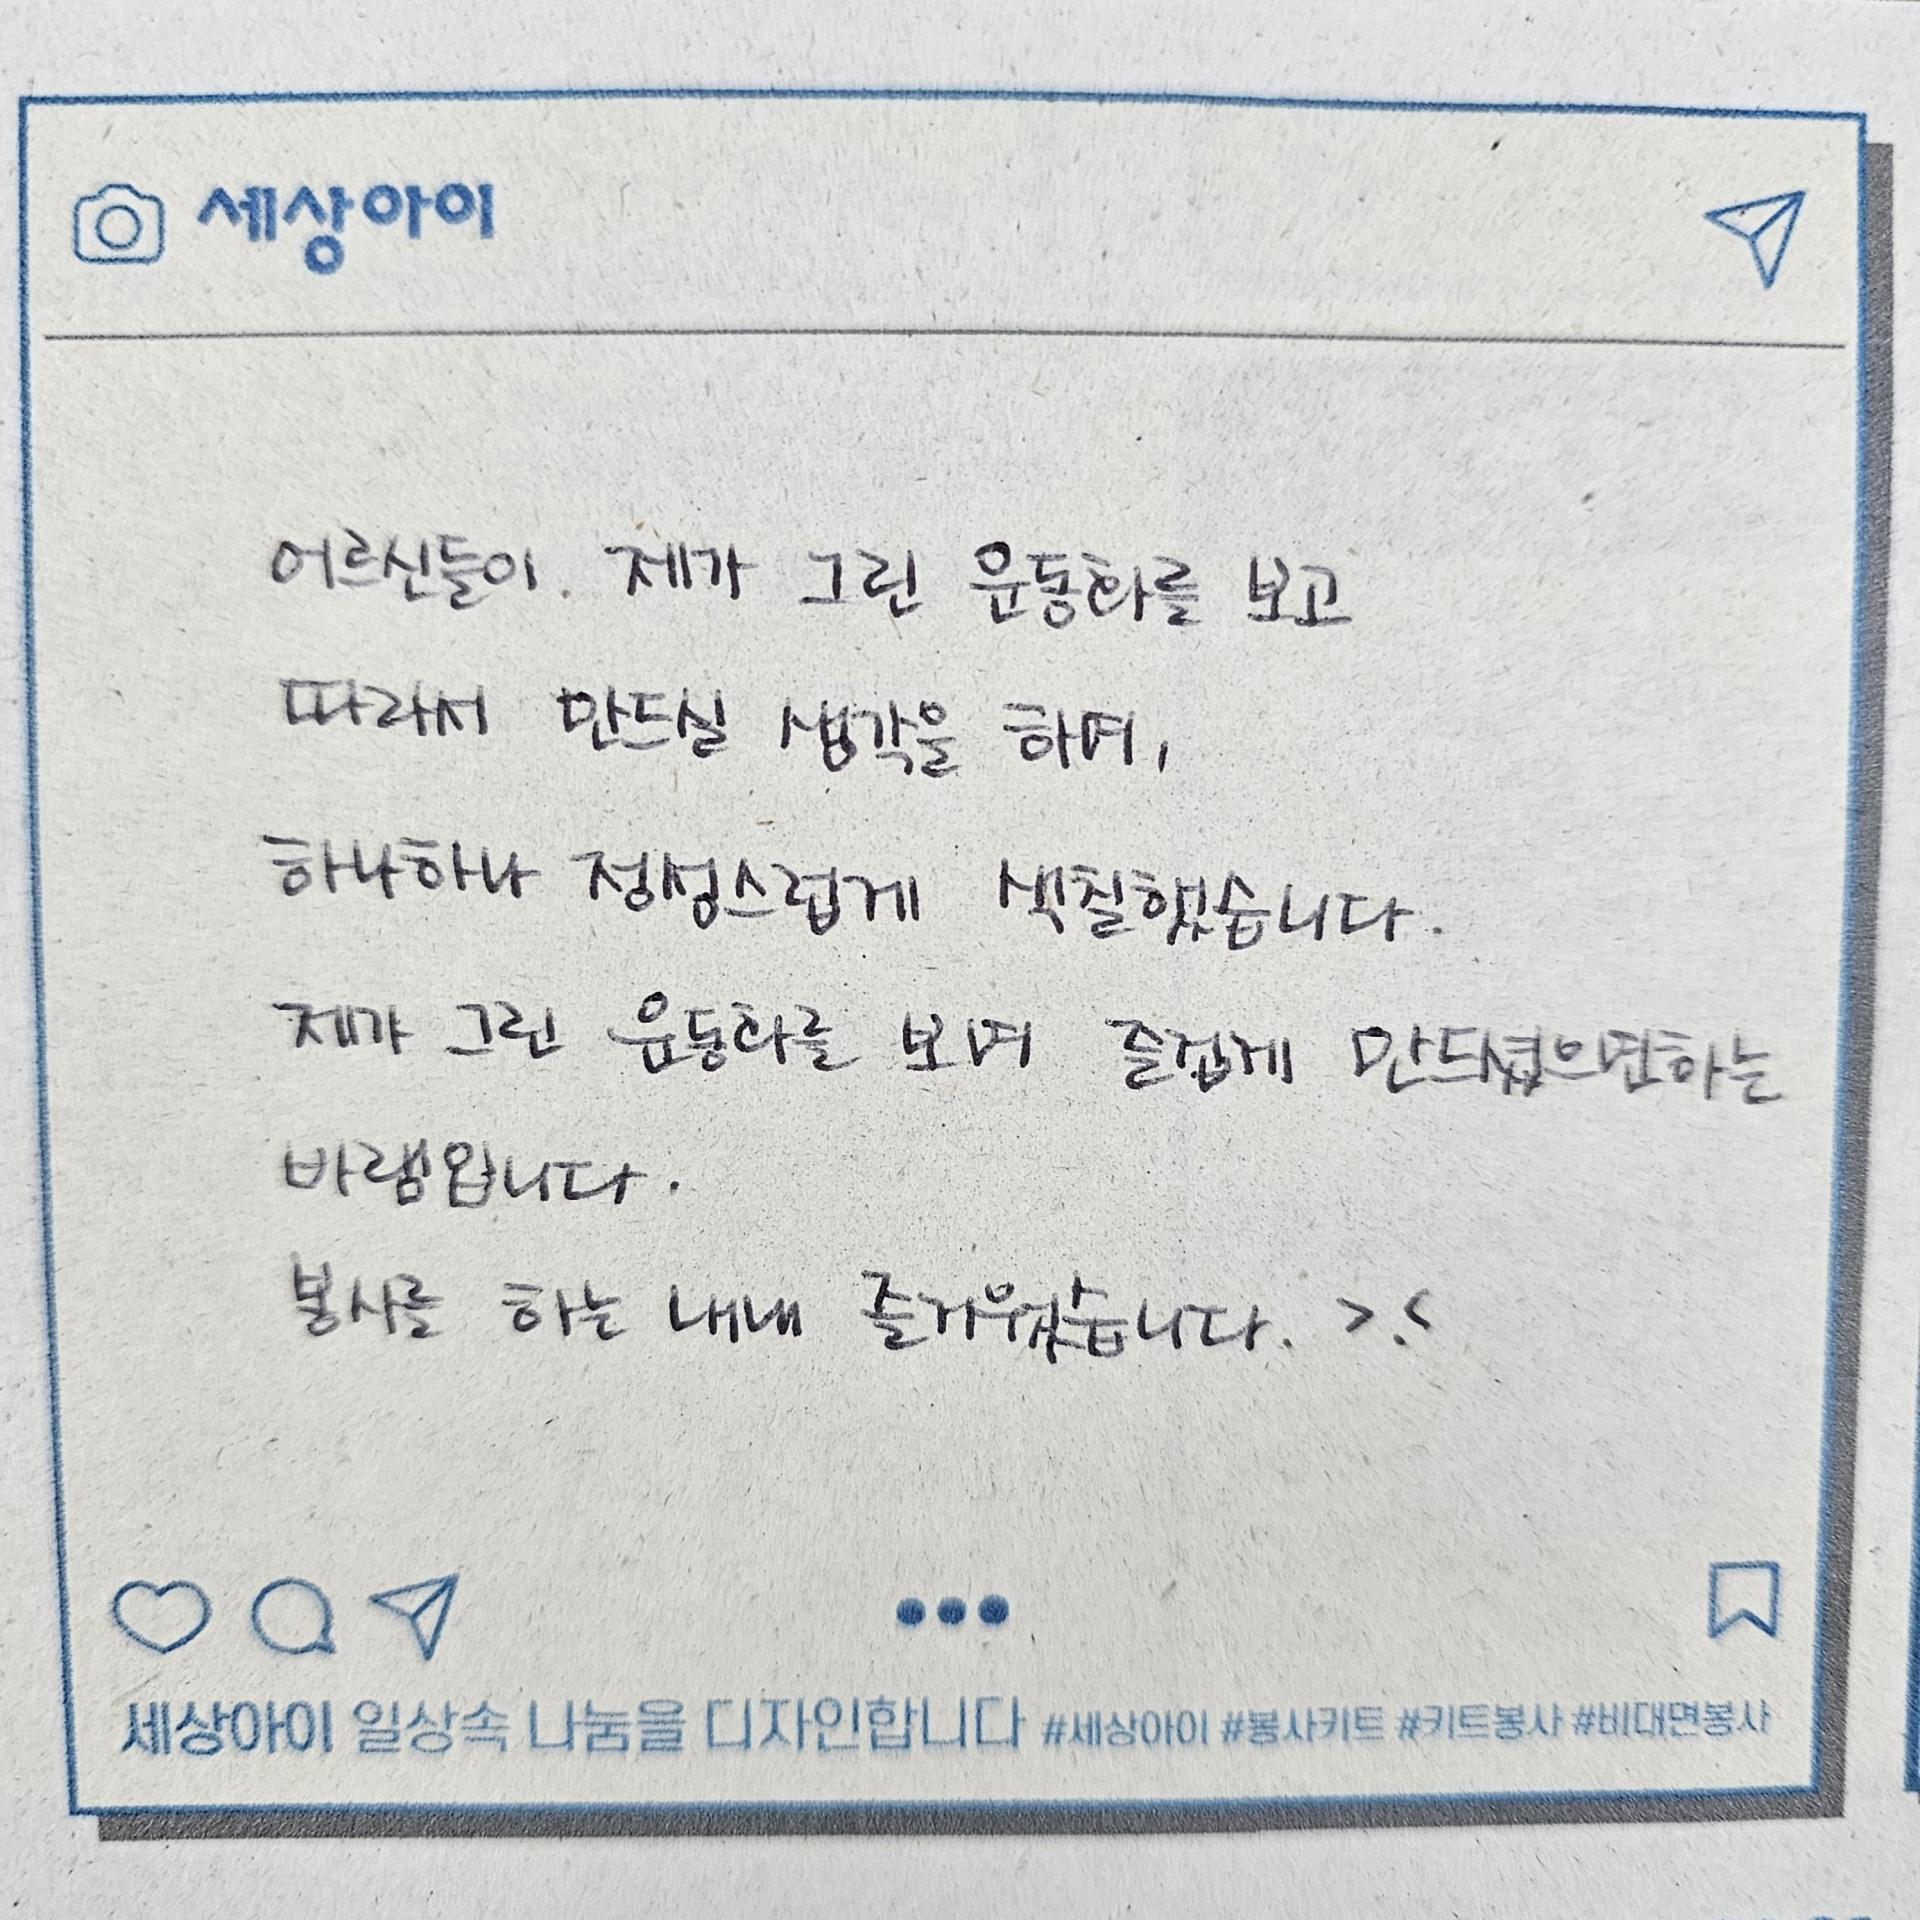 세상아이
어르신들이. 제가 그린 운동화를 보고
따라서 만드실 생각을 하며,
하나하나 정성스럽게 색칠했습니다.
제가 그린 운동화를 보며 즐겁게 만드셨으면하는
바램입니다.
봉사를 하는 내내 즐거웠습니다. >.<
세상아이 일상속 나눔을 디자인합니다 #세상아이 #봉사키트 #키트봉사 #비대면봉사